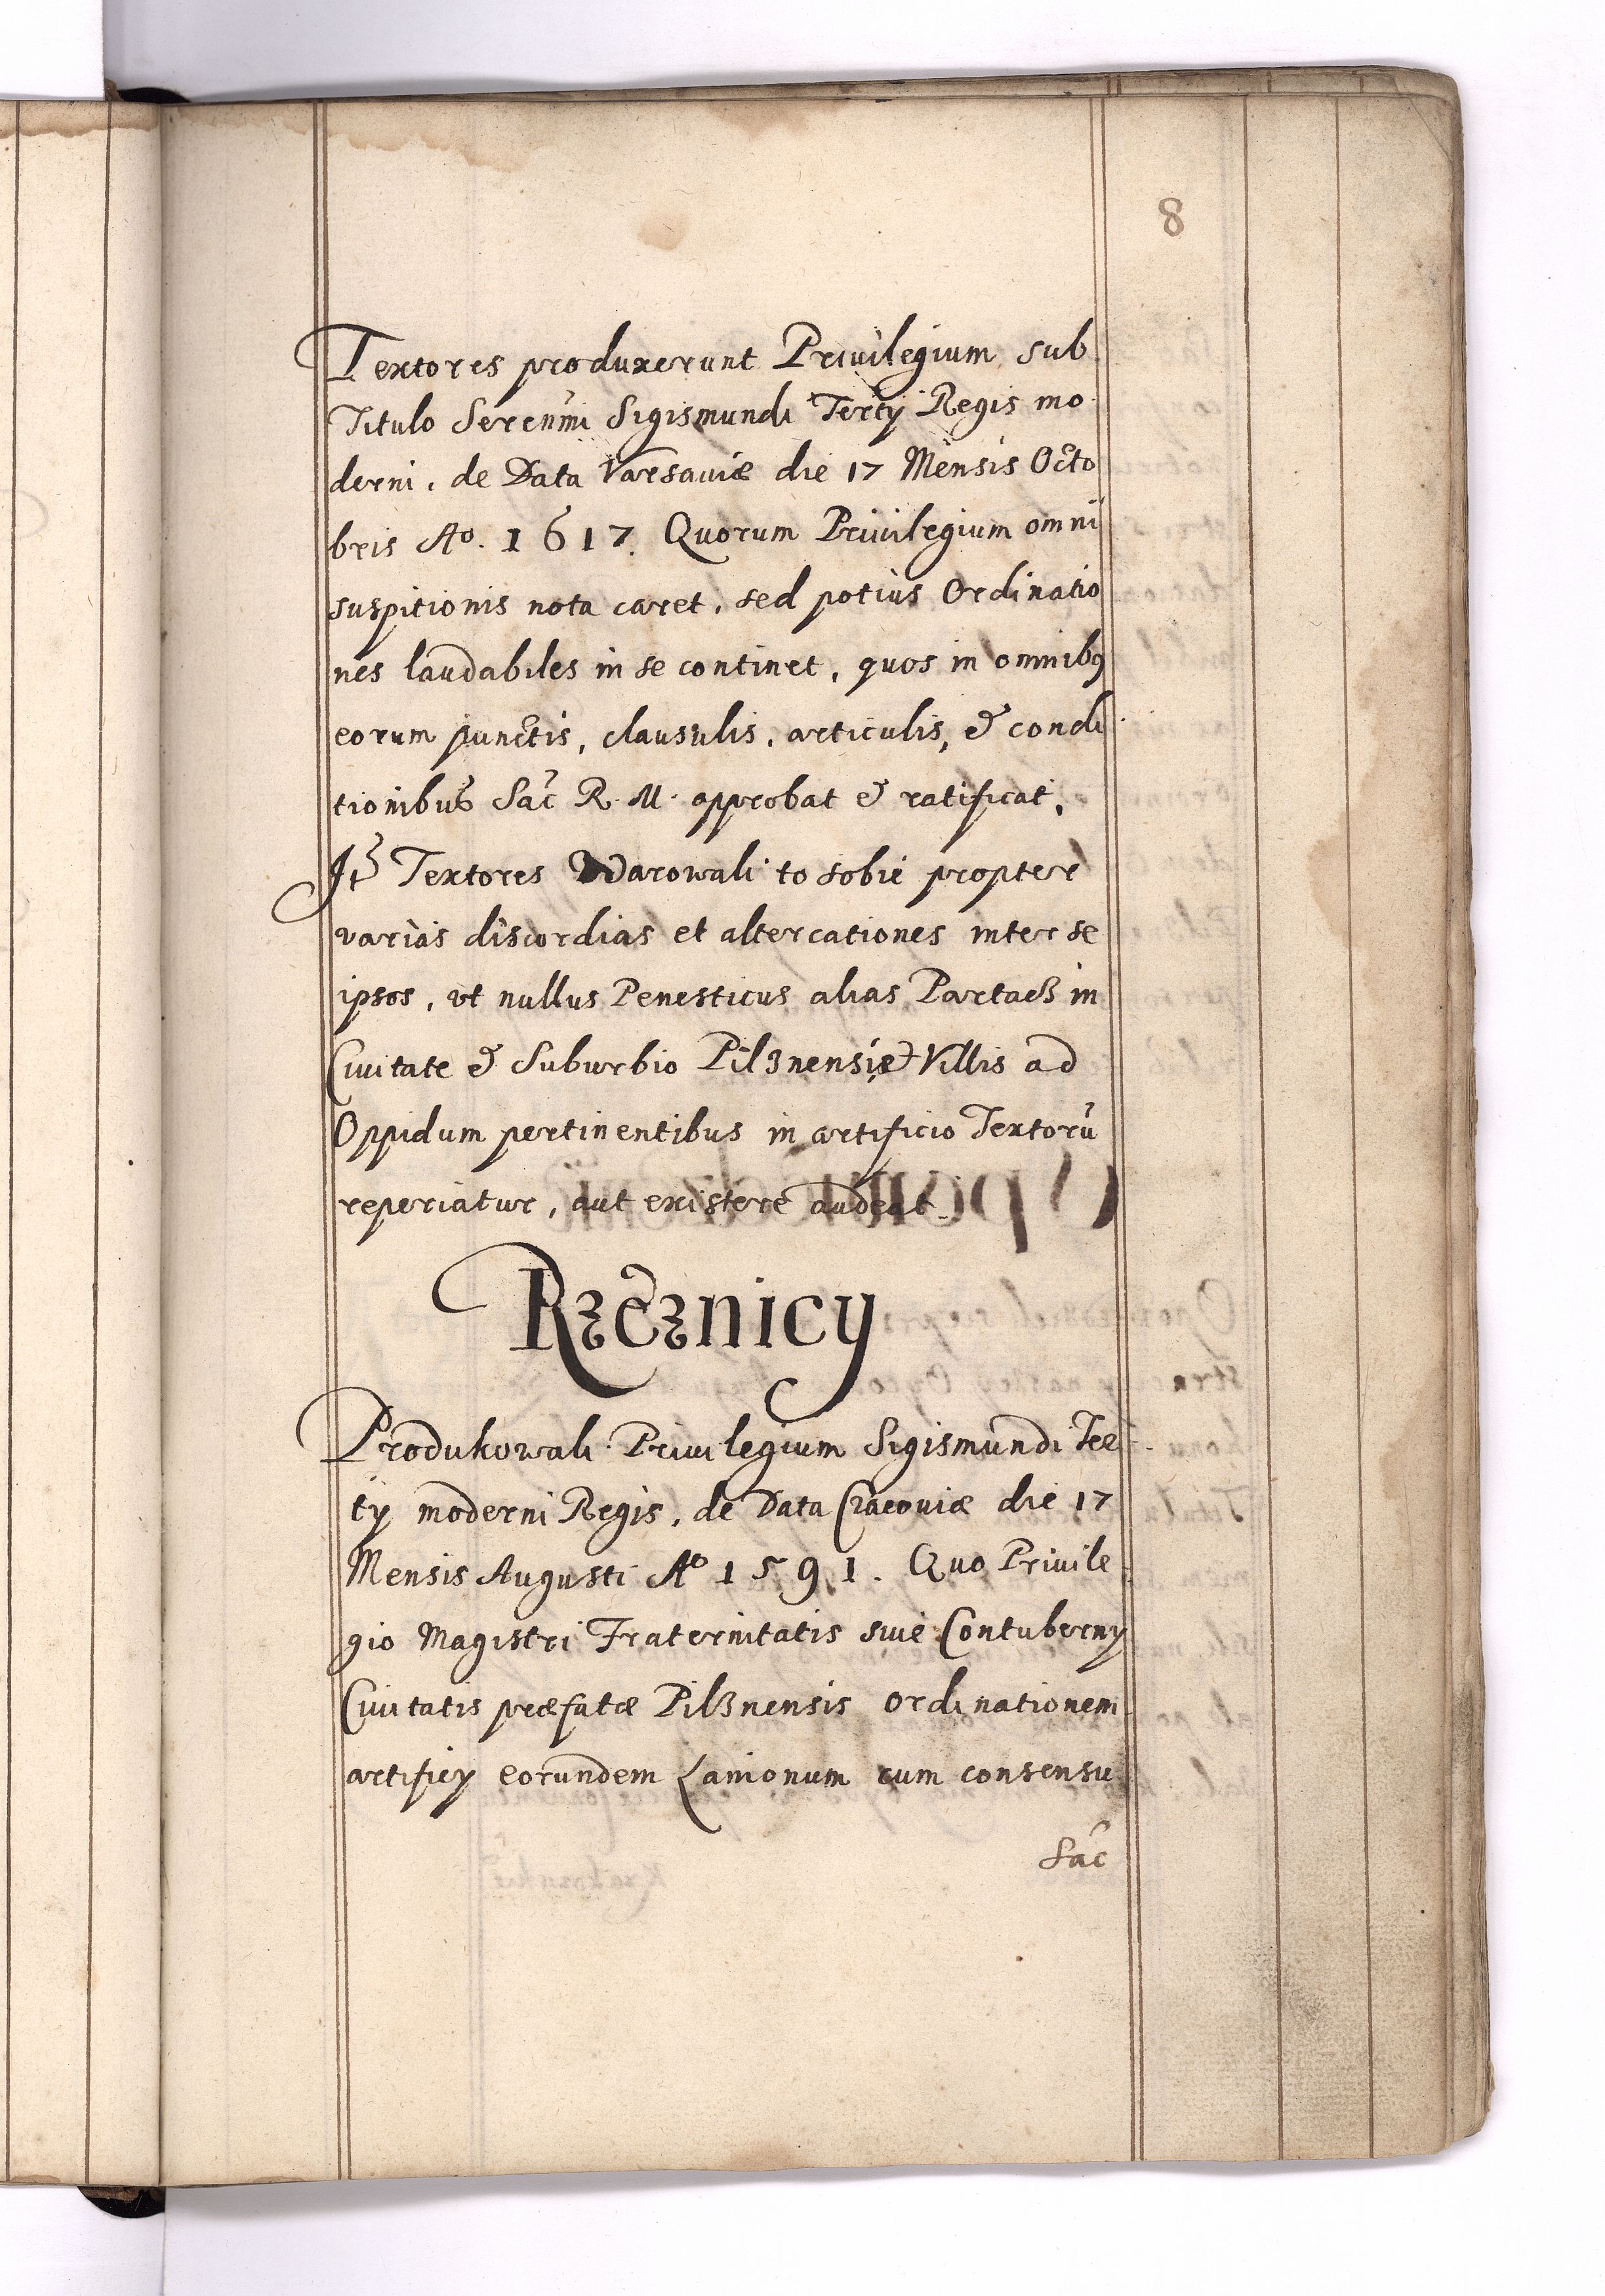 8
Textores produxerunt Priuilegium sub
Titulo Serenmi Sigismundi Tertÿ Regis mo
derni, de Data Varsauiæ die 17 Mensis Octo
bris Ao. 1617. Quorum Priuilegium omni
suspitionis nota caret, sed potius Ordinatio
nes laudabiles in se continet, quos in omnibꝯ
eorum punctis, clausulis, articulis, & condi
tionibus Sac R. M. approbat & ratificat,
It Textores Warowali to sobie propter
varias discordias et altercationes inter se
ipsos, vt nullus Penesticus alias Partacz in
Ciuitate & Suburbio Pilznensi & Villis ad
Oppidum pertinentibus in artificio Textorū
reperiatur, aut existere audeat.
Rzeznicy
Produkowali Priuilegium Sigismundi Ter
tÿ moderni Regis, de Data Cracouiæ die 17
Mensis Augusti Ao 1591. Quo Priuile
gio Magistri Fraternitatis siue Contubernÿ
Ciuitatis præfatæ Pilznensis Ordinationem
artificÿ eorundem Lanionum cum consensu
Sac